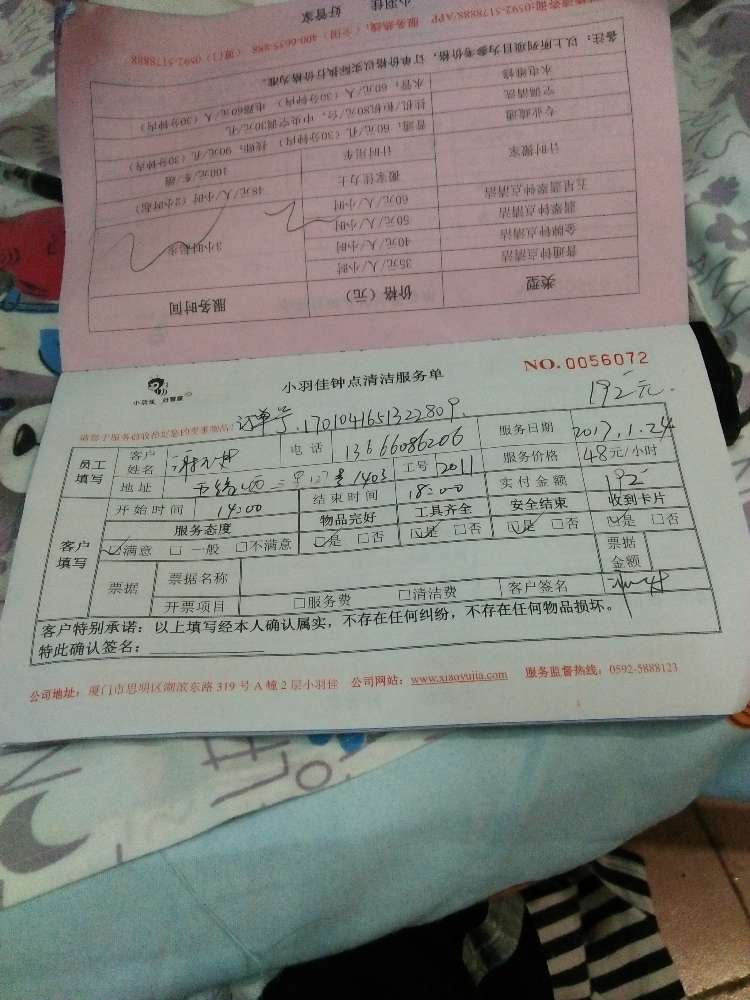 小羽佳
好管家
类型
价格（元）
服务时间
普通钟点清洁
35元/人/小时
3小时起步
金牌钟点清洁
40元/人/小时
翡翠钟点清洁
50元/人/小时
五星翡翠钟点清洁
60元/人/小时
计时搬家
搬家佳力士
48元/人/小时（2小时起）
计时用车
100元/车/趟
专业疏通
普通：60元/孔（30分钟内）
90元/孔（30分钟内）
空调清洗
挂机/柜机80元/台，中央空调30元/孔
水电维修
水管：60元/人（30分钟内）
电路60元/人（30分钟内）
备注：以上所列项目为参考价格，订单价格以实际执行价格为准。
服务热线：（全国）400-6635-888 （厦门）0592-5178888
0592-5178888/APP
小羽佳 好管家
小羽佳钟点清洁服务单
NO.0056072
192元.
订单号:1701041651322809.
员工填写
客户姓名
电话
13666086206
服务日期
2017.1.24
地址
127号1403
工号
2011
服务价格
48元/小时
开始时间
14:00
结束时间
18:00
实付金额
192
客户填写
服务态度
物品完好
工具齐全
安全结束
收到卡片
☑满意 □一般 □不满意
☑是 □否
☑是 □否
☑是 □否
☑是 □否
票据
票据名称
票据金额
开票项目
□服务费 □清洁费
客户签名
客户特别承诺：以上填写经本人确认属实，不存在任何纠纷，不存在任何物品损坏。
特此确认签名：
公司地址：厦门市思明区湖滨东路319号A幢2层小羽佳 公司网站：www.xiaoyujia.com 服务监督热线：0592-5888123